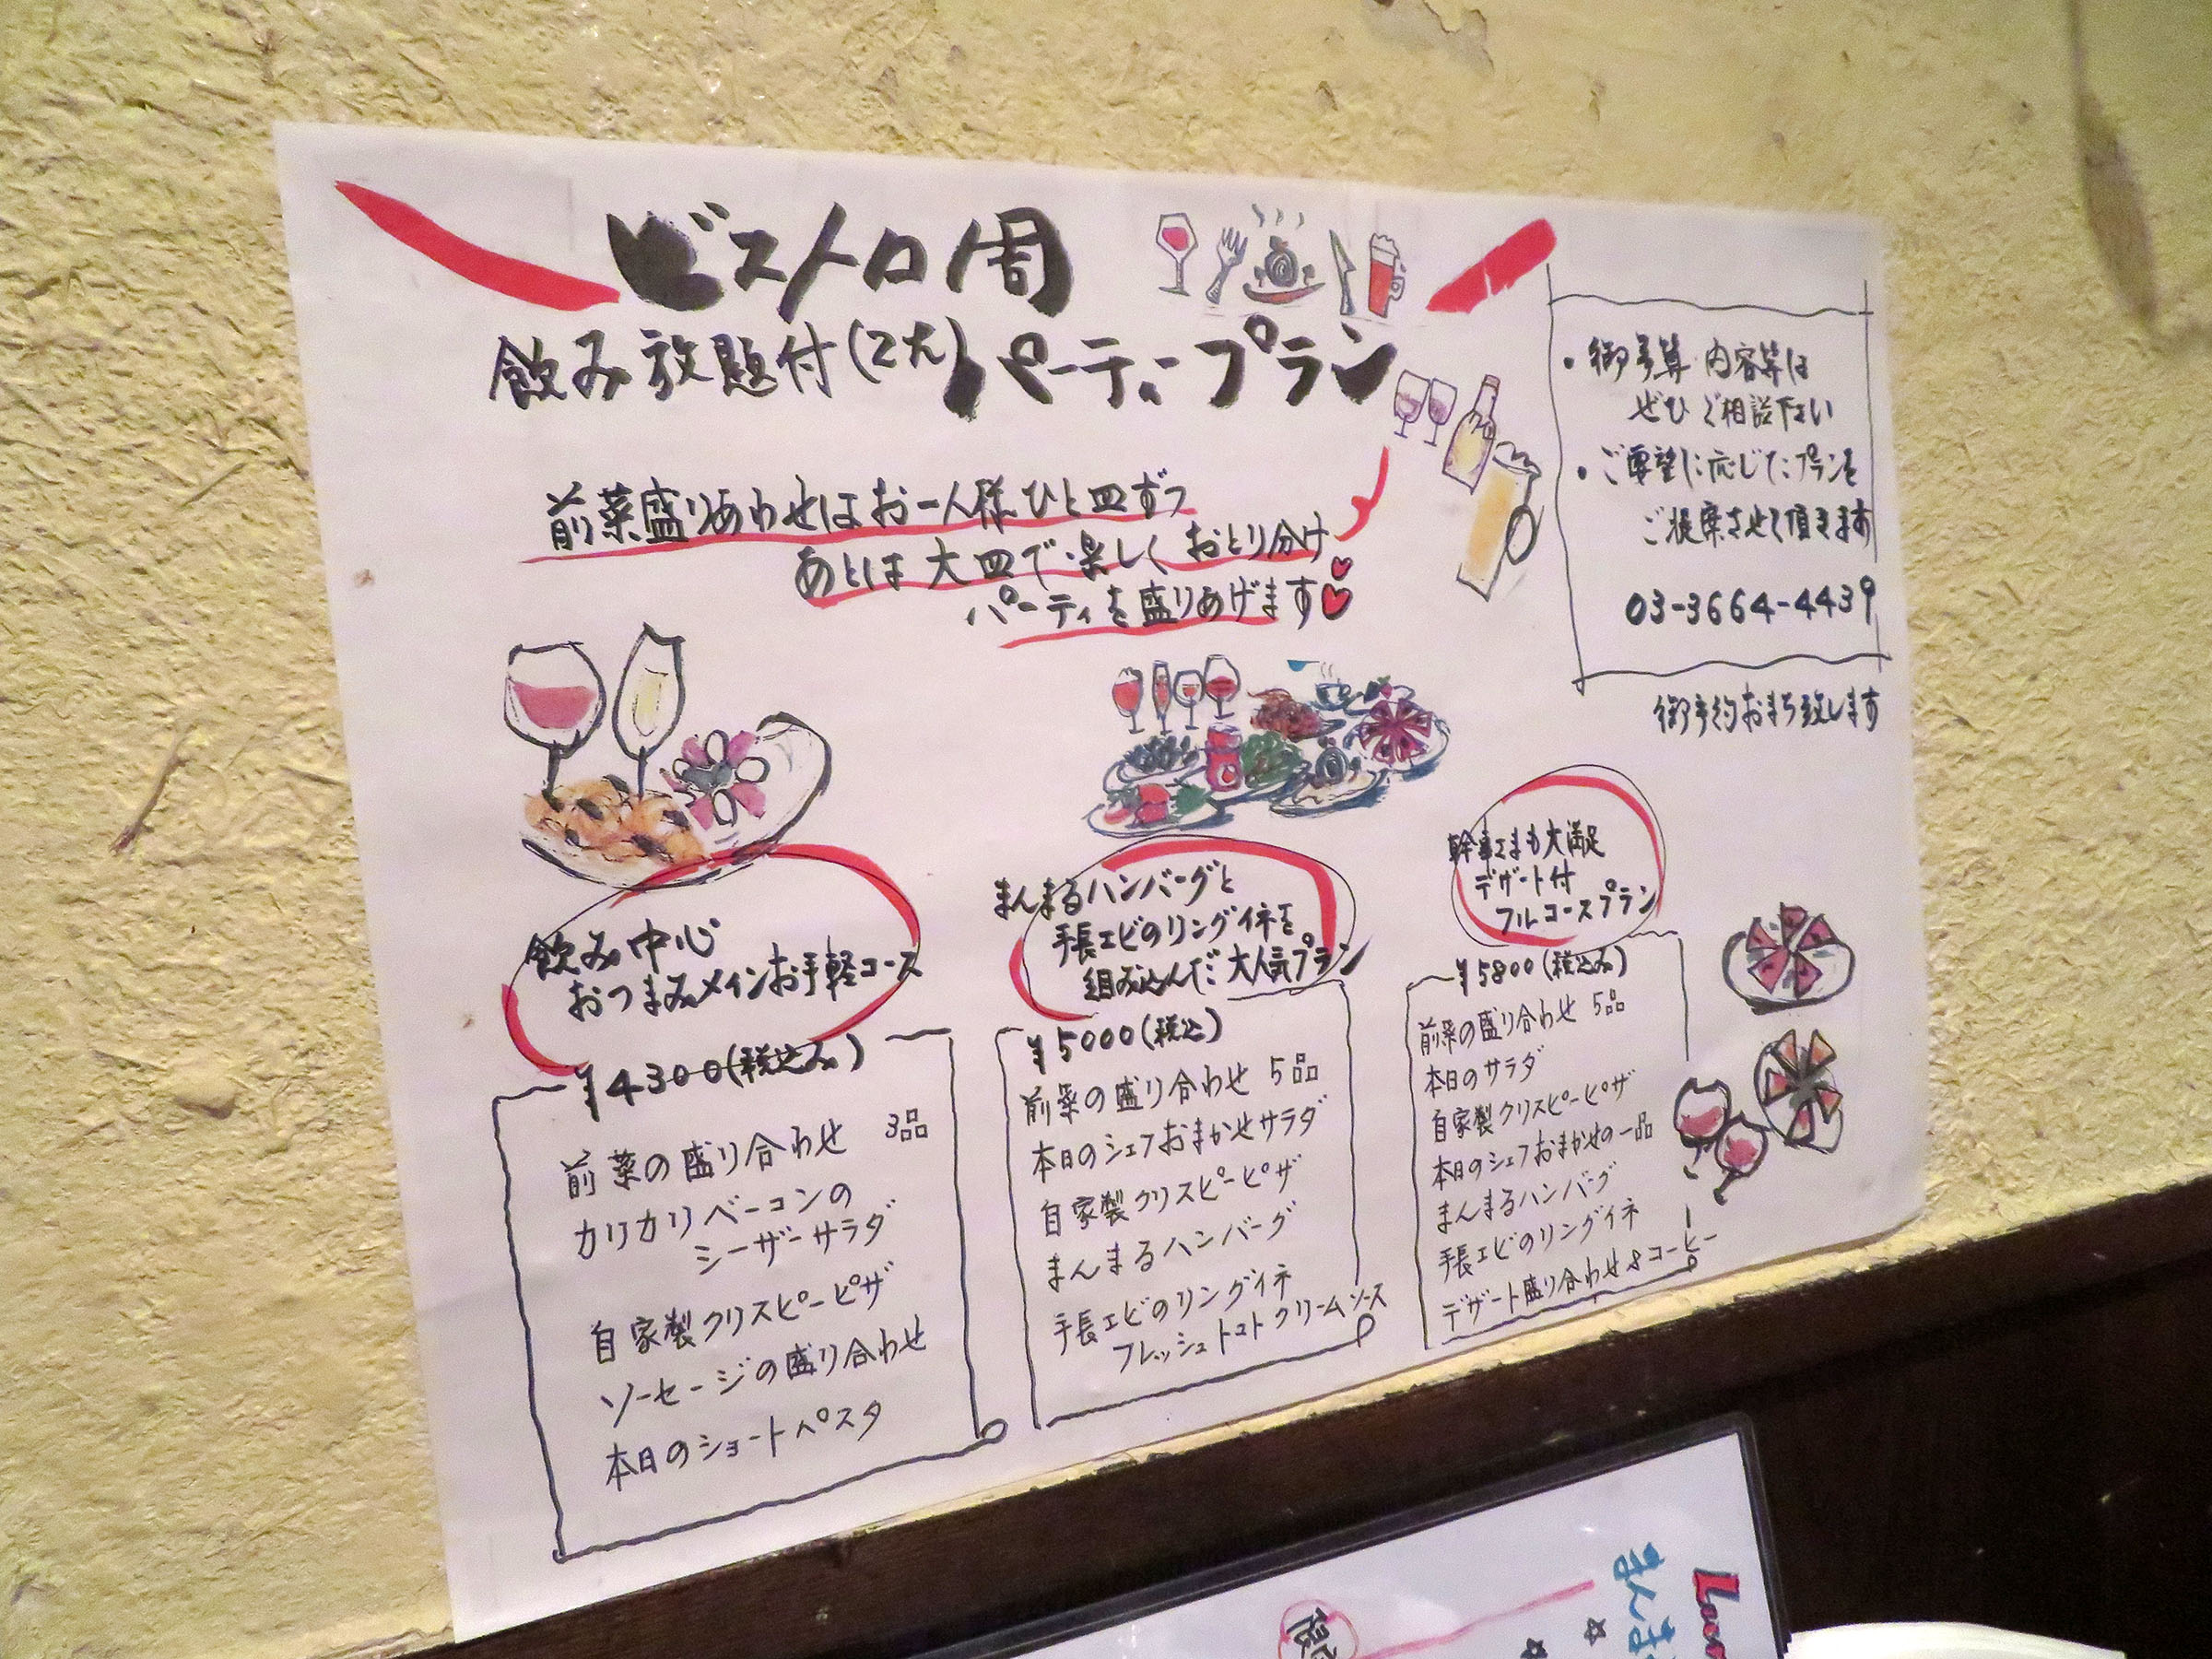 ビストロ周
飲み放題付(2h)パーティープラン
前菜盛りあわせはお一人様ひと皿ずつ
あとは大皿で楽しくおとり分け
パーティを盛りあげます
・御予算 内容等は
ぜひご相談下さい
・ご要望に応じたプランを
ご提案させて頂きます
03-3664-4439
御予約おまち致します
飲み中心
おつまみメインお手軽コース
¥4300(税込み)
前菜の盛り合わせ 3品
カリカリベーコンの
シーザーサラダ
自家製クリスピーピザ
ソーセージの盛り合わせ
本日のショートパスタ
まんまるハンバーグと
手長エビのリングイネを
組み込んだ大人気プラン
¥5000(税込)
前菜の盛り合わせ 5品
本日のシェフおまかせサラダ
自家製クリスピーピザ
まんまるハンバーグ
手長エビのリングイネ
フレッシュトマトクリームソース
幹事さまも大満足
デザート付
フルコースプラン
¥5800(税込み)
前菜の盛り合わせ 5品
本日のサラダ
自家製クリスピーピザ
本日のシェフおまかせの一品
まんまるハンバーグ
手長エビのリングイネ
デザート盛り合わせ&コーヒー
まんま